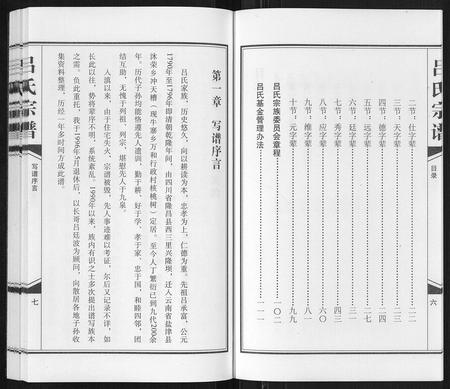 吕氏宗谱
目录
六
二节：仕字辈 二二
三节：天字辈 二二
四节：德字辈
五节：远字辈 二七
六节：廷字辈 三四
七节：秀字辈 四三
八节：应字辈 六五
九节：维字辈 八一
十节：元字辈 九九
吕氏宗族委员会章程 一〇二
吕氏基金管理办法 一一一
第一章 写谱序言
吕氏家族，历史悠久，向以耕读为本，忠孝为上，仁德为重。先祖吕承富，公元
1790年至1796年即清朝乾隆年间，由四川省隆昌县西三里兴隆坝，迁入云南省盐津县
沐荣乡冲天槽（现牛寨乡万和行政村核桃树）定居。至今人丁繁衍已到九代200余
年，历代子孙均能恪遵先人遗训，勤于耕、好于学，孝于家、忠于国，和睦四邻，团
结互助，无愧于列祖、列宗，堪慰先人于九泉。
入滇以来，由于住宅失火，宗谱被毁，先人事迹难以考证，尔后又记录不详，如
长此以往，势将辈序不明，系统紊乱。1990年以来，族内有识之士多次提出谱写族本
之需。负此重托，我于1996年5月退休后，以长哥吕廷波为顾问，向散居各地子孙收
集资料整理，历经一年多时间方成此谱。
吕氏宗谱
写谱序言
七